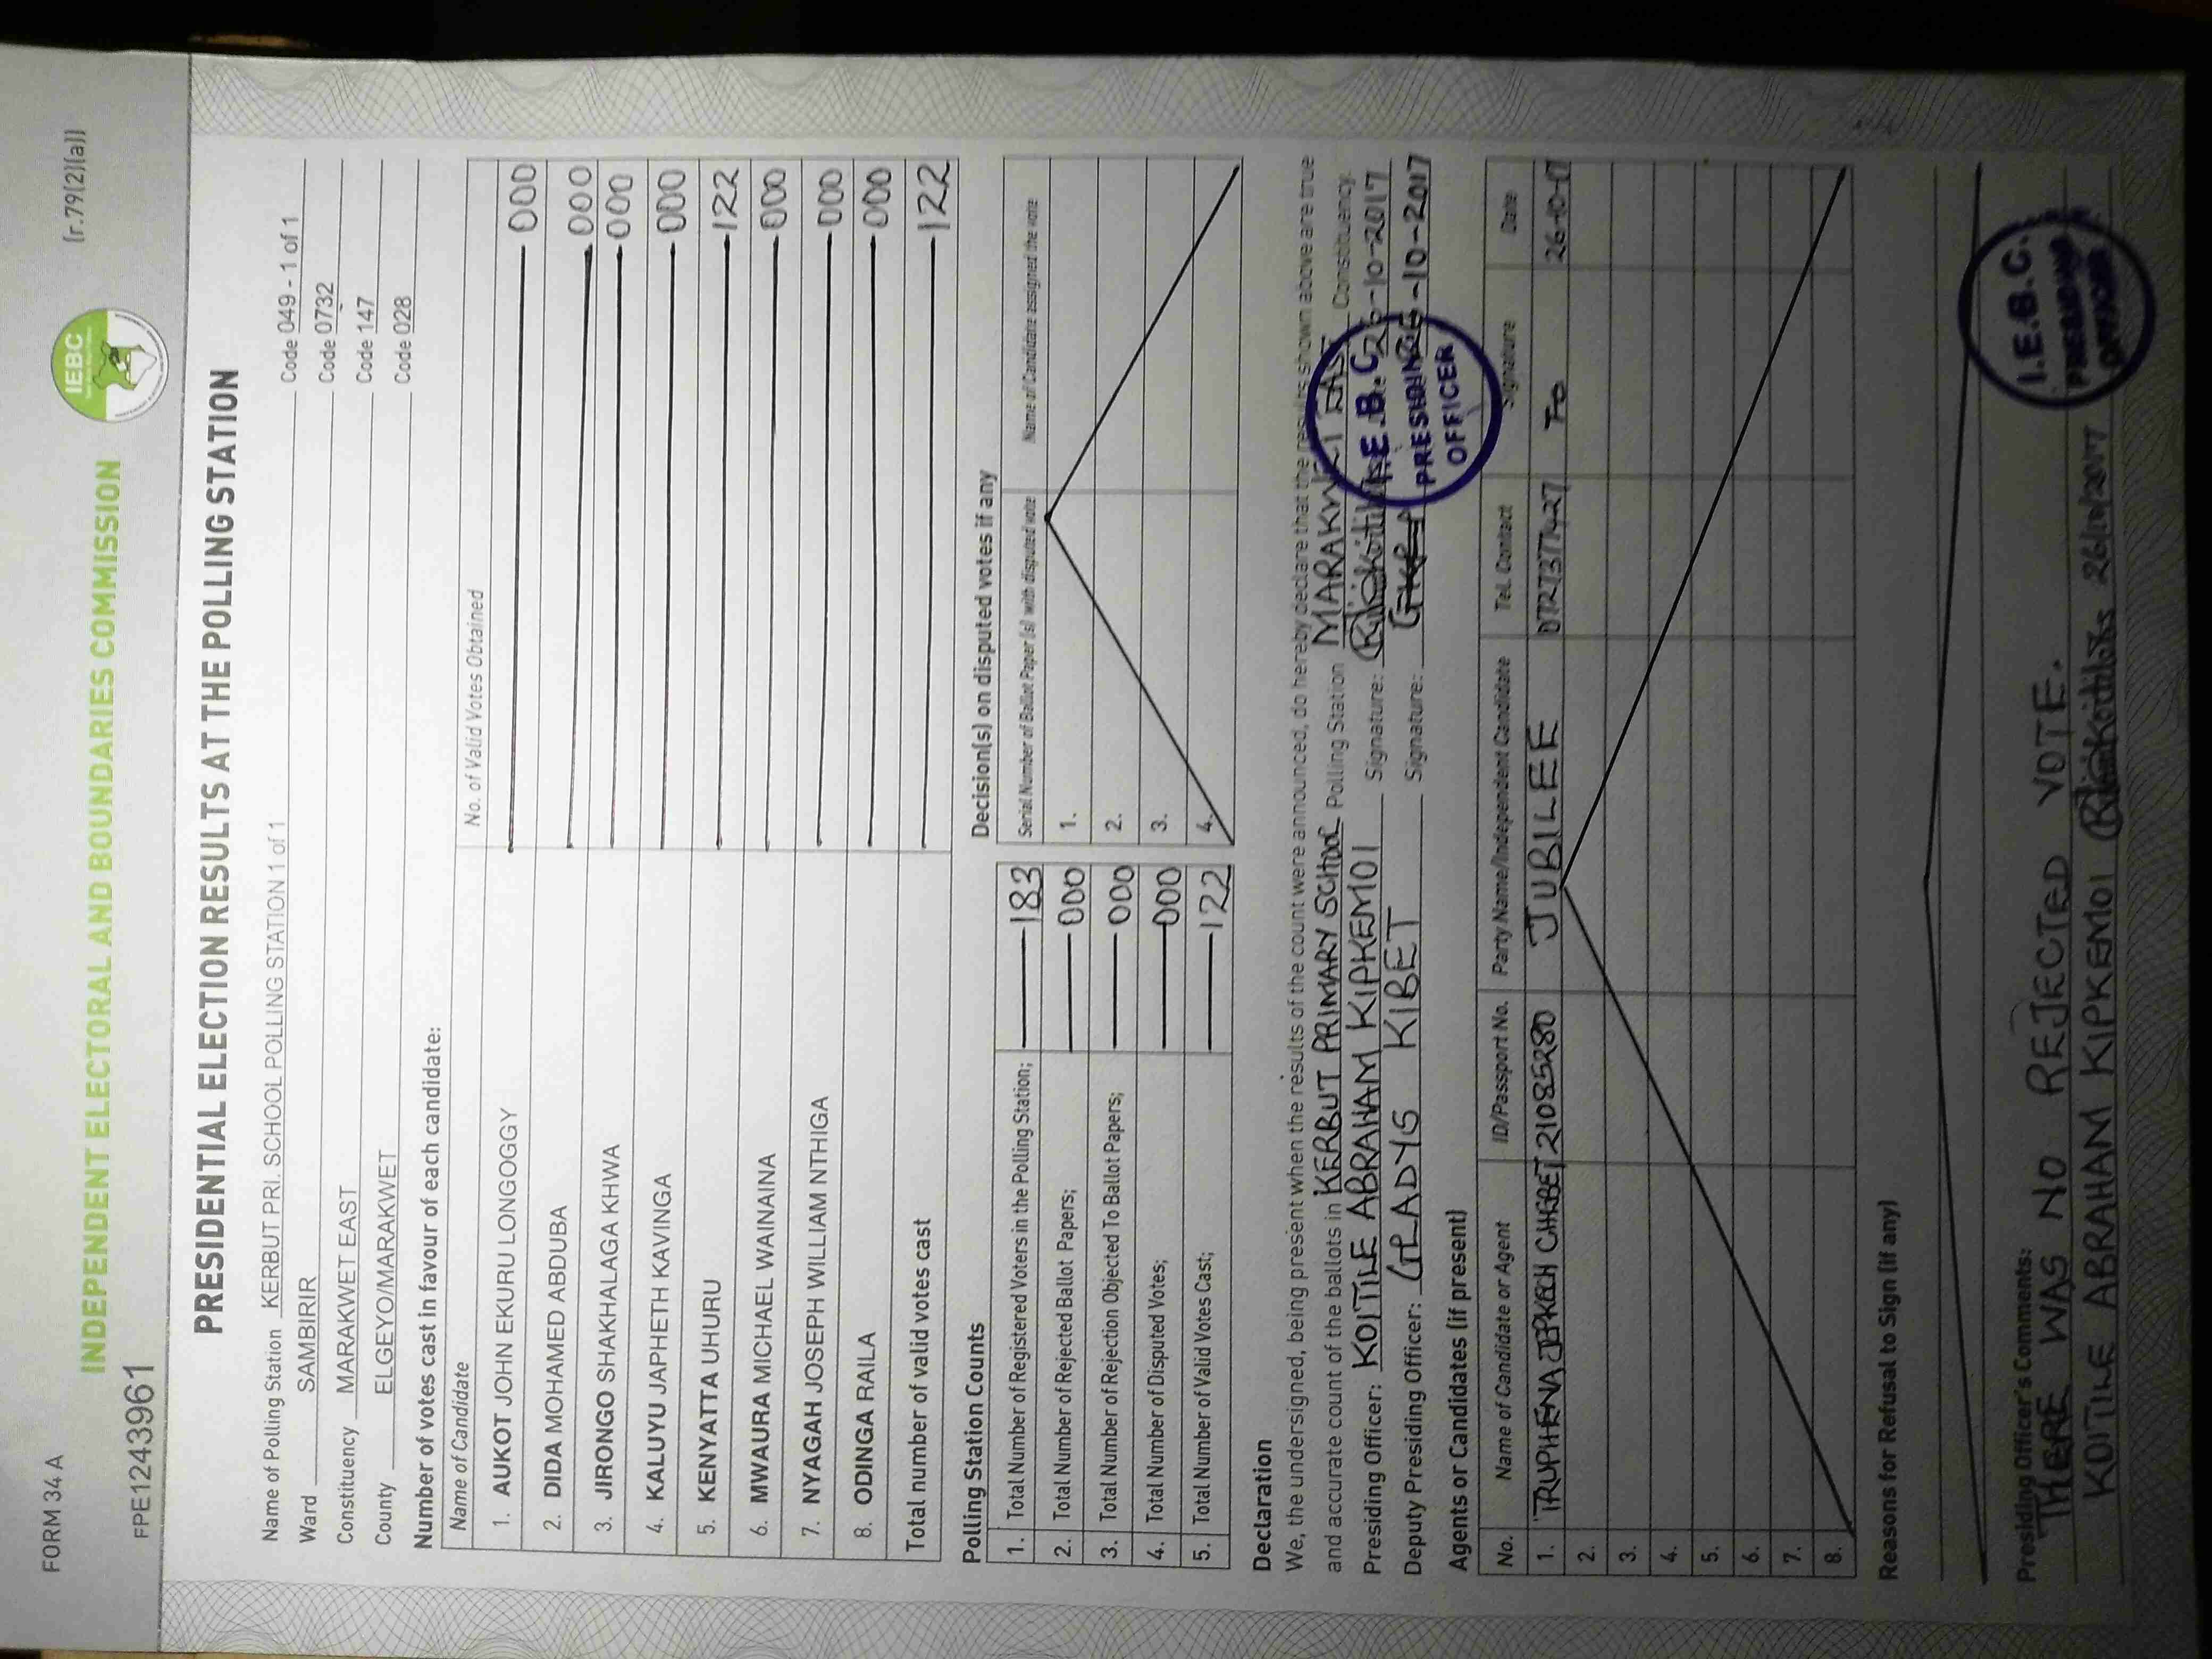 FORM 34 A
(r.79(2)(a))
IEBC
INDEPENDENT ELECTORAL AND BOUNDARIES COMMISSION
FPE1243961
PRESIDENTIAL ELECTION RESULTS AT THE POLLING STATION
Name of Polling Station KERBUT PRI. SCHOOL POLLING STATION 1 of 1 Code 049 - 1 of 1
Ward SAMBIRIR Code 0732
Constituency MARAKWET EAST Code 147
County ELGEYO/MARAKWET Code 028
Number of votes cast in favour of each candidate:
Name of Candidate No. of Valid Votes Obtained
1. AUKOT JOHN EKURU LONGOGGY 000
2. DIDA MOHAMED ABDUBA 000
3. JIRONGO SHAKHALAGA KHWA 000
4. KALUYU JAPHETH KAVINGA 000
5. KENYATTA UHURU 122
6. MWAURA MICHAEL WAINAINA 000
7. NYAGAH JOSEPH WILLIAM NTHIGA 000
8. ODINGA RAILA 000
Total number of valid votes cast 122
Polling Station Counts
1. Total Number of Registered Voters in the Polling Station; 183
2. Total Number of Rejected Ballot Papers; 000
3. Total Number of Rejection Objected To Ballot Papers; 000
4. Total Number of Disputed Votes; 000
5. Total Number of Valid Votes Cast; 122
Decision(s) on disputed votes if any
Serial Number of Ballot Paper (s) with disputed vote Name of Candidate assigned the vote
1.
2.
3.
4.
Declaration
We, the undersigned, being present when the results of the count were announced, do hereby declare that the results shown above are true
and accurate count of the ballots in KERBUT PRIMARY SCHOOL Polling Station MARAKWET EAST Constituency.
Presiding Officer: KOITILE ABRAHAM KIPKEMOI Signature: 26-10-2017
Deputy Presiding Officer: GLADYS KIBET Signature: 26-10-2017
I.E.B.C.
PRESIDING
OFFICER
Agents or Candidates (if present)
No. Name of Candidate or Agent ID/Passport No. Party Name/Independent Candidate Tel. Contact Signature Date
1. TRUPHENA JEPKECH 21085280 JUBILEE 26-10-17
2.
3.
4.
5.
6.
7.
8.
Reasons for Refusal to Sign (if any)
Presiding Officer's Comments:
THERE WAS NO REJECTED VOTE.
KOITILE ABRAHAM KIPKEMOI 26/10/2017
I.E.B.C.
PRESIDING
OFFICER